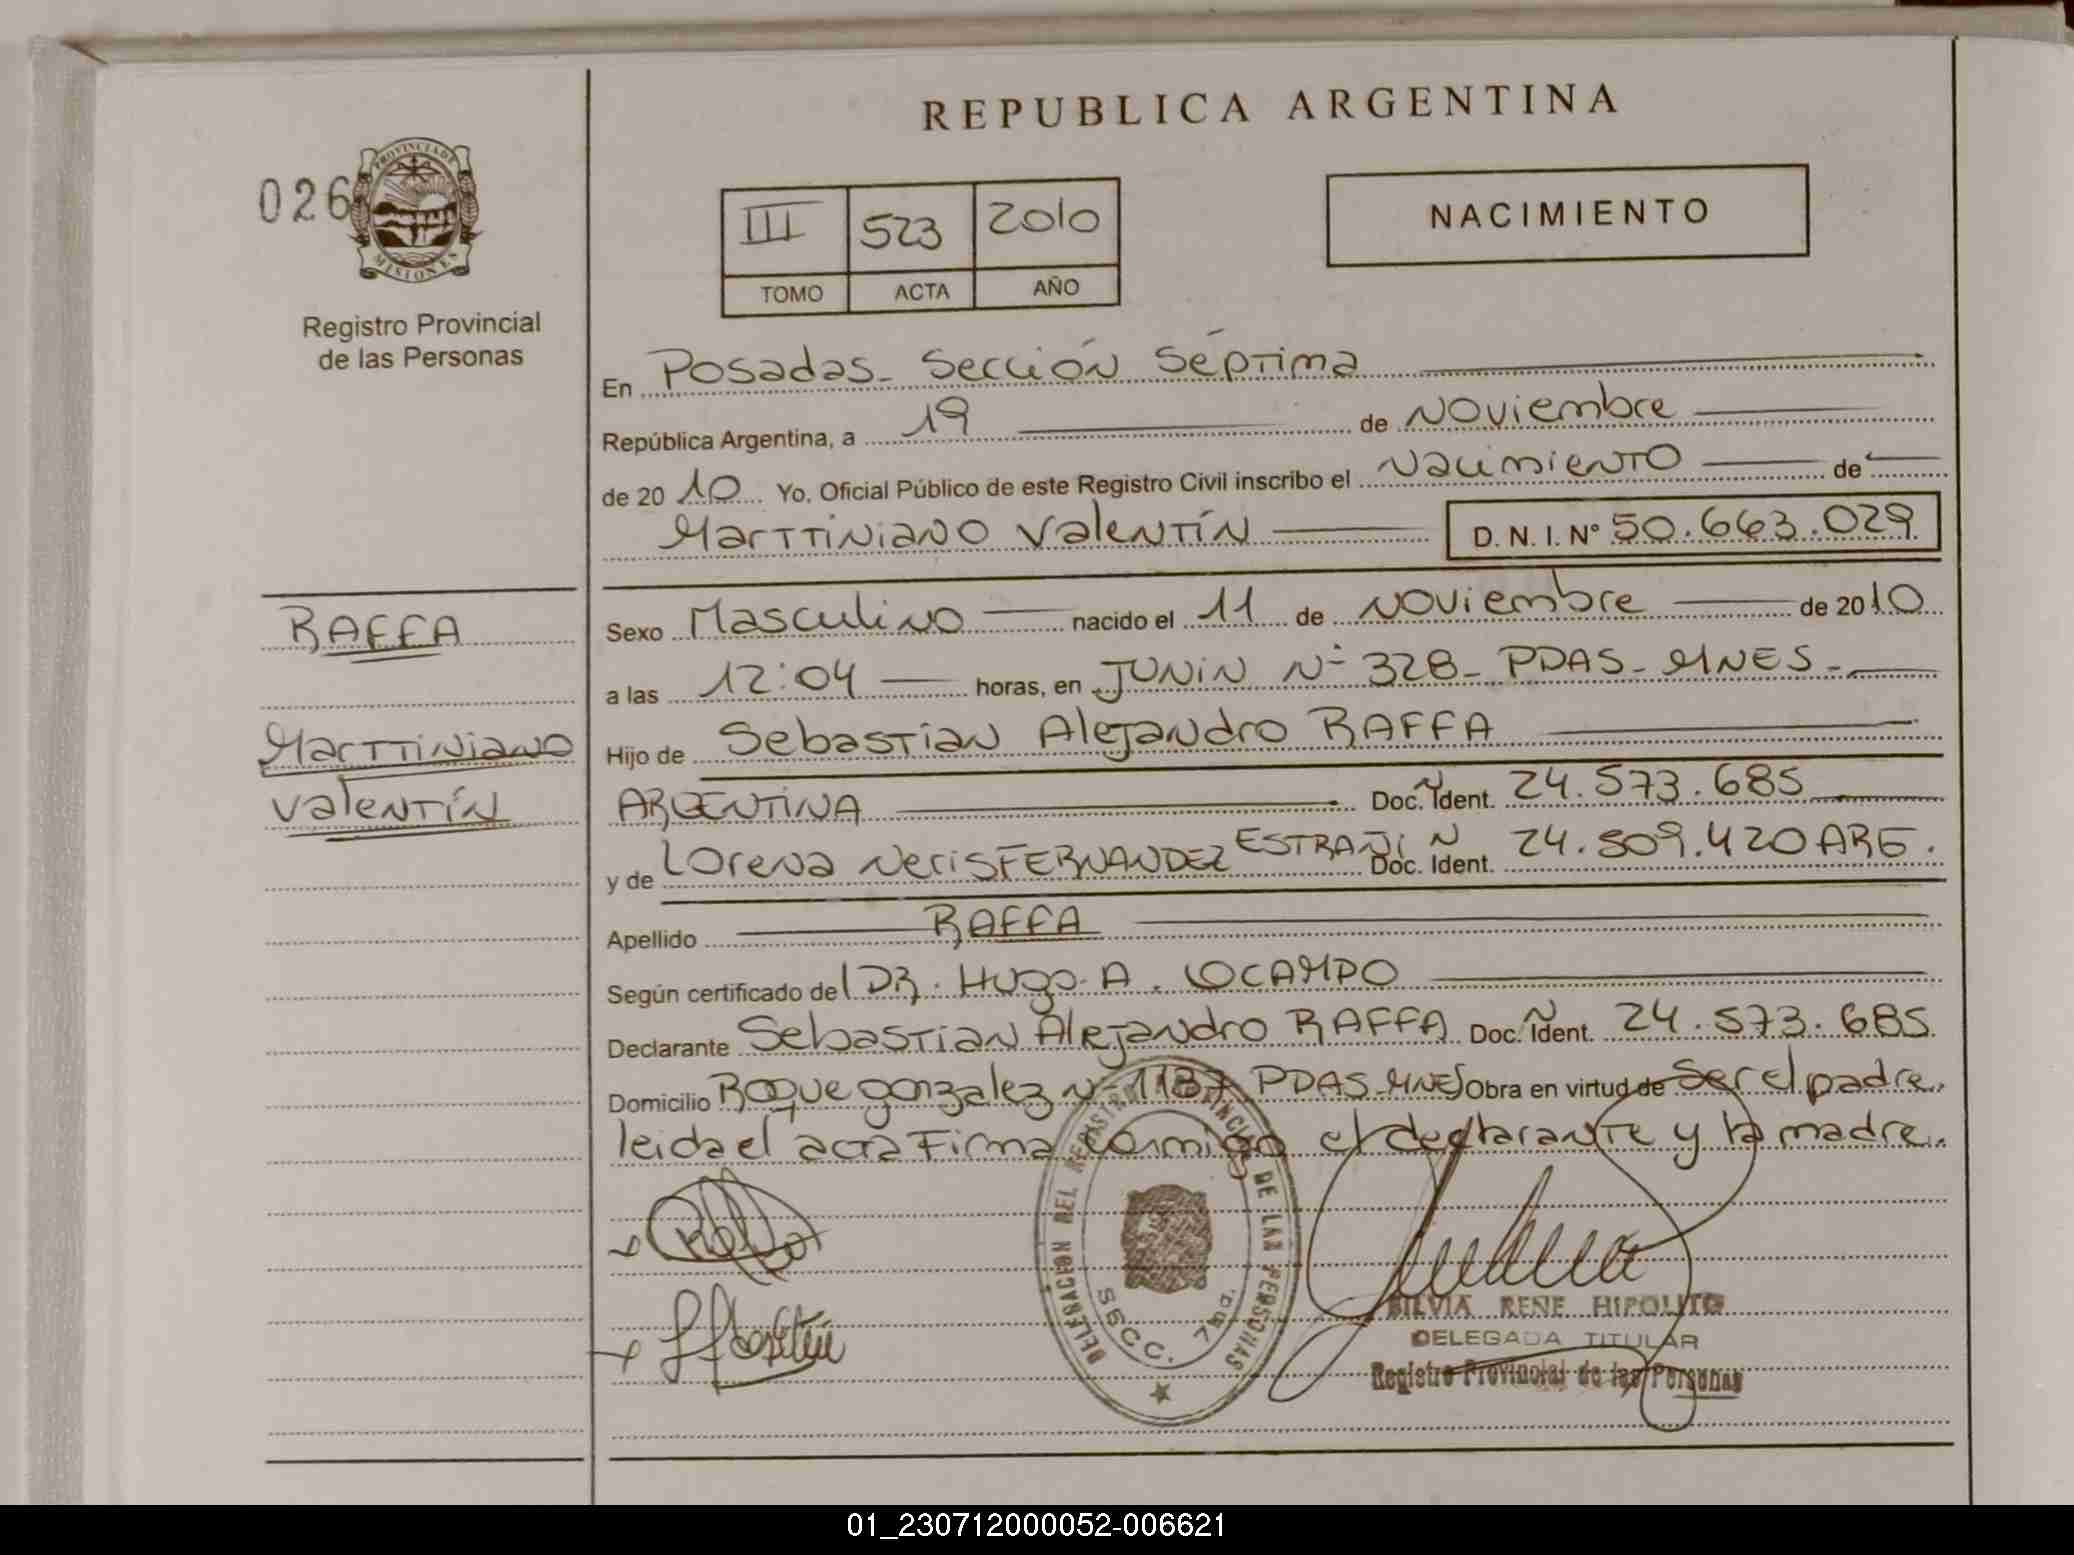 REPUBLICA ARGENTINA
026
PROVINCIA DE
MISIONES
Registro Provincial
de las Personas
III 523 2010
TOMO ACTA AÑO
NACIMIENTO
En Posadas - Sección Séptima
República Argentina, a 19 de Noviembre
de 2010 Yo, Oficial Público de este Registro Civil inscribo el Nacimiento de
Marttiniano Valentín D. N. I. N° 50.663.029
RAFFA
Marttiniano
Valentín
Sexo Masculino nacido el 11 de Noviembre de 2010
a las 12:04 horas, en JUNIN N° 328 - PDAS - MNES -
Hijo de Sebastian Alejandro RAFFA
ARGENTINA Doc. Ident. 24.573.685
y de Lorena Neris FERNANDEZ Doc. Ident. 24.509.420 ARG.
Apellido RAFFA
Según certificado del DR. Hugo A. OCAMPO
Declarante Sebastian Alejandro RAFFA Doc. Ident. 24.573.685
Domicilio Roque gonzalez N° 1137 PDAS - MNES Obra en virtud de ser el padre,
leida el acta Firma conmigo el declarante y la madre.
DELEGACION DEL REGISTRO PROVINCIAL DE LAS PERSONAS
SECC. 7ma.
SILVIA RENE HIPOLITO
DELEGADA TITULAR
Registro Provincial de las Personas
01_230712000052-006621